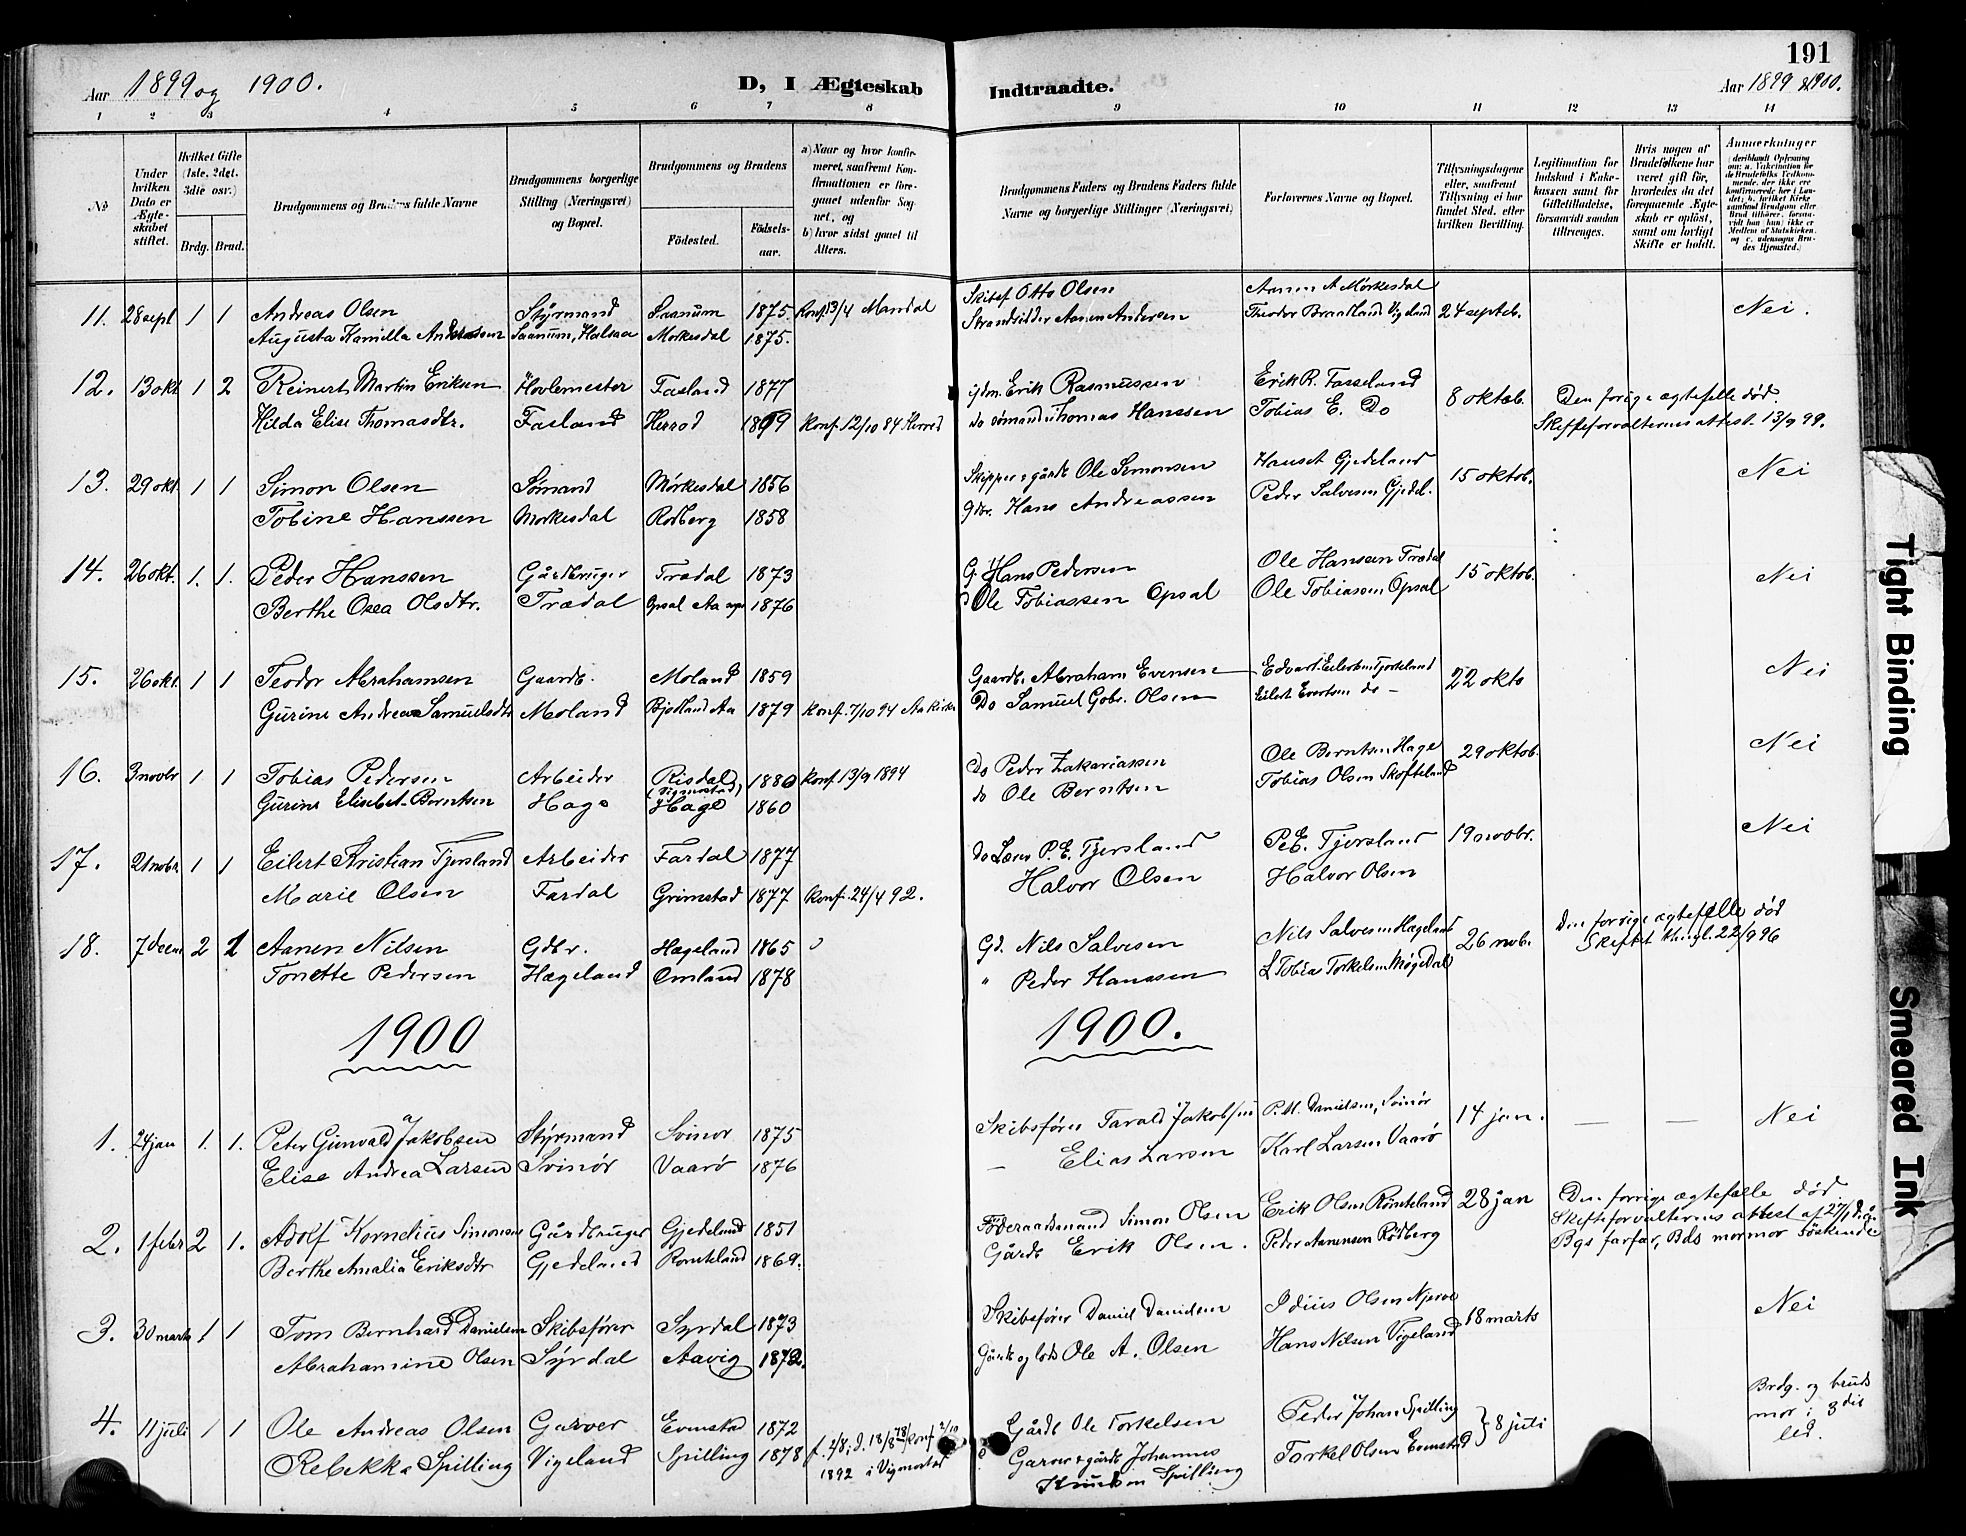 191
Aar 1899 og 1900.
D, I Ægteskab
Indtraadte.
Aar 1899 & 1900.
1 2 3 4 5 6 7 8 9 10 11 12 13 14
№
Under hvilken Dato er Ægteskabet stiftet.
Hvilket Gifte (1ste, 2det, 3die osv.)
Brdg. Brud.
Brudgommens og Brudens fulde Navne
Brudgommens borgerlige Stilling (Næringsvei) og Bopæl.
Brudgommens og Brudens
Fødested.
Fødselsaar.
a) Naar og hvor konfirmeret, saafremt Konfirmationen er foregaaet udenfor Sognet, og b) hvor sidst gaaet til Alters.
Brudgommens Faders og Brudens Faders fulde Navne og borgerlige Stillinger (Næringsvei)
Forlovernes Navne og Bopæl.
Tillysningsdagene eller, saafremt Tillysning ei har fundet Sted, efter hvilken Bevilling.
Legitimation for Indskud i Enkekassen samt for Giftetilladelse, forsaavidt saadan tiltrænges.
Hvis nogen af Brudefolkene har været gift før, hvorledes da det foregaaende Ægteskab er opløst, samt om lovligt Skifte er holdt.
Anmærkninger
11. 28 sept 1 1 Andreas Olsen Styrmand Saanum 1875. Konf. 13/4 Mandal Skibsf Otto Olsen Aanen A Mørkesdal 24 septeb. Nei.
Augusta Kamilla Saanum, Halsaa Mørkesdal 1875. Strandsidder Aanen Andersen Teodor Braatland Vigeland
12. 13 okt 1 2 Reinert Martin Eriksen Høvlemester Fasland 1877 Erik Rasmussen Erik R. Fasseland 8 oktob. Den forrige ægtefelle død.
Hilda Elise Thomasdtr. Fasland Herrad Konf. 12/10 84 Herred do sømand Thomas Hanssen Tobias E. Do Skifteforvalterens attest. 13/9 99.
13. 29 okt. 1 1 Simon Olsen Sømand Mørkesdal 1856 Skipper & gårdb Ole Simonsen Gjedeland 15 oktob. Nei
Tobine Hanssen Mørkesdal Rødberg 1858 Gdbr. Hans Andreassen Peder Salvesen Gjedel.
14. 26 okt. 1. 1. Peder Hanssen Gårdbruger Trædal 1873 G. Hans Pedersen Ole Hanssen Trædal 15 oktob. Nei
Berthe Osea Olsdtr. Trædal Opsal Aa 1876 Ole Tobiassen Opsal Ole Tobiassen Opsal
15. 26 okt. 1 1 Teodor Abrahamsen Gaardb. Moland 1859 Gaardb. Abraham Evensen Edvart Eilertsen Tjorteland 22 okto Nei
Gurine Andrea Samuelsdtr Moland Bjodland Aa 1879 Konf. 7/10 94 Aa Kirke Do Samuel Gobr. Olsen Eilert Evertsen do -
16. 3 novbr 1 1 Tobias Pedersen Arbeider Risdal (Vigmostad) 1880 Konf. 13/9 1894 Do Peder Zakariassen Ole Berntsen Hage 29 oktob. Nei
Gurine Elisebet Berntsen Hage Hage 1860 do Ole Berntsen Tobias Olsen Skofteland
17. 21 nobr. 1 1 Eilert Kristian Tjersland Arbeider Fardal 1877 do P. E. Tjersland P. E. Tjersland 19 novbr. Nei
Marie Olsen Fardal Grimstad 1877 Konf. 24/4 92. Halvor Olsen Halvor Olsen
18. 7 decm 2 1 Aanen Nilsen Gdbr. Hægeland 1865 Gd. Nils Salvesen Nils Salvesen Hægeland 26 nob. Den forrige ægtefelle død
Tonette Pedersen Hægeland Omland 1878 " Peder Hanssen Tobia Torkelsen Møgedal Skiftet thingl. 22/9 96
1900 1900.
1. 24 jan 1. 1. Peter Gunvald Jakobsen Styrmand Svinør 1875 Skibsfører Tarald Jakobsen P. M. Danielsen, Svinør 14 jan. — — Nei
Elise Andrea Larsen Svinør Vaarø 1876 — Elias Larsen Karl Larsen Vaarø
2. 1 febr 2 1. Adolf Kornelius Simonsen Gårdbruger Gjedeland 1851 Føderaadsmand Simon Olsen Erik Olsen Rømteland 28 jan Den forrige ægtefælle død
Berthe Amalia Eriksdtr Gjedeland Romteland 1869. Gårdb Erik Olsen. Peder Aanensen Rødberg Skifteforvalterens attest af 27/1 d. a.
Bgs farfar, Bds mormor søskende
3. 30 marts 1 1 Tom Bernhard Danielsen Skibsfører Syrdal 1873 Skibsfører Daniel Danielsen Idius Olsen Njerve 18 marts Nei
Abrahamine Olsen Syrdal Aavig 1872. Gårdb og lods Ole A. Olsen Hans Nilsen Vigeland
4. 11 juli 1 1 Ole Andreas Olsen Garver Evmstad 1872 Gårdb Ole Torkelsen Peder Johan Spilling } 8 juli Brdg. og bruds mor i 3die led.
Rebekka Spilling Vigeland Spilling 1878 f. 2/8; d. 18/8 78; Konf 2/10 1892 i Vigmostad Garver & gårdb Johannes Knudsen Spilling Torkel Olsen Evmstad
Tight Binding
Smeared Ink